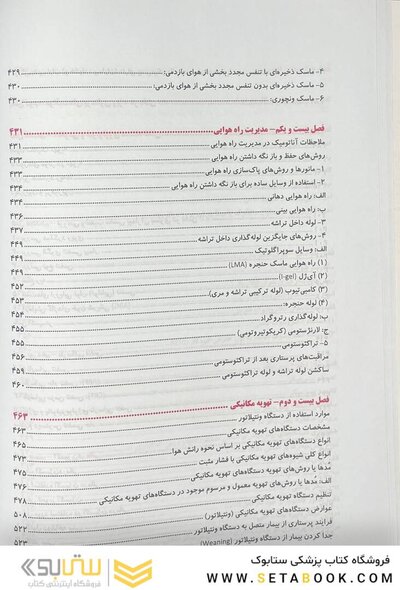 ۴- ماسک ذخیره‌ای با تنفس مجدد بخشی از هوای بازدمی: ۴۲۹
۵- ماسک ذخیره‌ای بدون تنفس مجدد بخشی از هوای بازدمی: ۴۳۰
۶- ماسک ونچوری: ۴۳۰
فصل بیست و یکم- مدیریت راه هوایی ۴۳۱
ملاحظات آناتومیک در مدیریت راه هوایی ۴۳۱
روش‌های حفظ و باز نگه داشتن راه هوایی ۴۳۳
۱- مانورها و روش‌های پاک‌سازی راه هوایی ۴۳۳
۲- استفاده از وسایل ساده برای باز نگه داشتن راه هوایی ۴۳۴
الف: راه هوایی دهانی ۴۳۴
ب: راه هوایی بینی ۴۳۶
۳- لوله داخل تراشه ۴۳۷
۴- روش‌های جایگزین لوله‌گذاری داخل تراشه ۴۴۹
الف: وسایل سوپراگلوتیک ۴۴۹
(۱) راه هوایی ماسک حنجره (LMA) ۴۴۹
(۲) آی‌ژل (I-gel) ۴۵۲
(۳) کامبی‌تیوب (لوله ترکیبی تراشه و مری) ۴۵۳
(۴) لوله حنجره: ۴۵۴
ب: لوله‌گذاری رتروگراد ۴۵۵
ج: لارنژستومی (کریکوتیروتومی) ۴۵۵
۵- تراکئوستومی ۴۵۵
مراقبت‌های پرستاری بعد از تراکئوستومی ۴۵۹
ساکشن لوله تراشه و لوله تراکئوستومی ۴۶۰
فصل بیست و دوم- تهویه مکانیکی ۴۶۳
موارد استفاده از دستگاه ونتیلاتور ۴۶۳
مشخصات دستگاه‌های تهویه مکانیکی ۴۶۵
انواع دستگاه‌های تهویه مکانیکی بر اساس نحوه رانش هوا ۴۷۳
انواع کلی شیوه‌های تهویه مکانیکی با فشار مثبت ۴۷۵
مُدها یا روش‌های تهویه دستگاه‌های تهویه مکانیکی ۴۷۶
الف: مُدها یا روش‌های تهویه معمول و مرسوم موجود در دستگاه‌های تهویه مکانیکی ۴۷۸
تنظیم دستگاه تهویه مکانیکی ۵۰۸
عوارض دستگاه‌های تهویه مکانیکی (ونتیلاتور) ۵۲۲
فرایند پرستاری از بیمار متصل به دستگاه ونتیلاتور ۵۲۳
جدا کردن بیمار از دستگاه ونتیلاتور (Weaning)
ستابوک
فروشگاه اینترنتی کتاب
فروشگاه کتاب پزشکی ستابوک
WWW.SETABOOK.COM